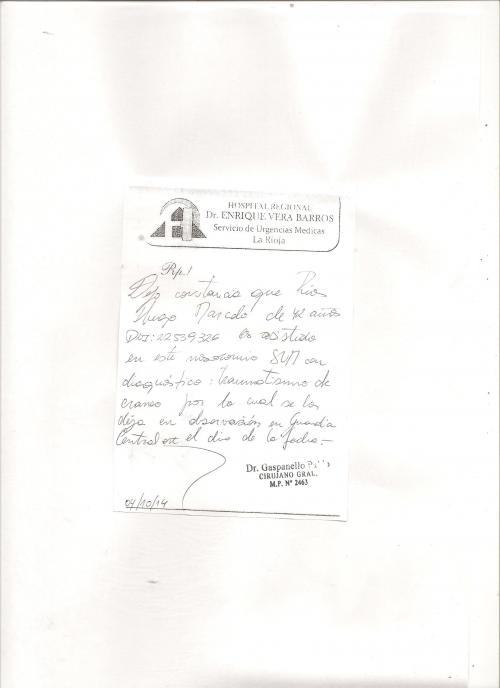 HOSPITAL REGIONAL
Dr. ENRIQUE VERA BARROS
Servicio de Urgencias Medicas
La Rioja
Rp./
Dejo constancia que Rios
Hugo Marcelo de 42 años
DNI: 22539326 es asistido
en este nosocomio SUM con
diagnóstico: traumatismo de
craneo por lo cual se lo
deja en observación en Guardia
Central el dia de la fecha.-
Dr. Gaspanello
CIRUJANO GRAL.
M.P. Nº 2463
04/10/14